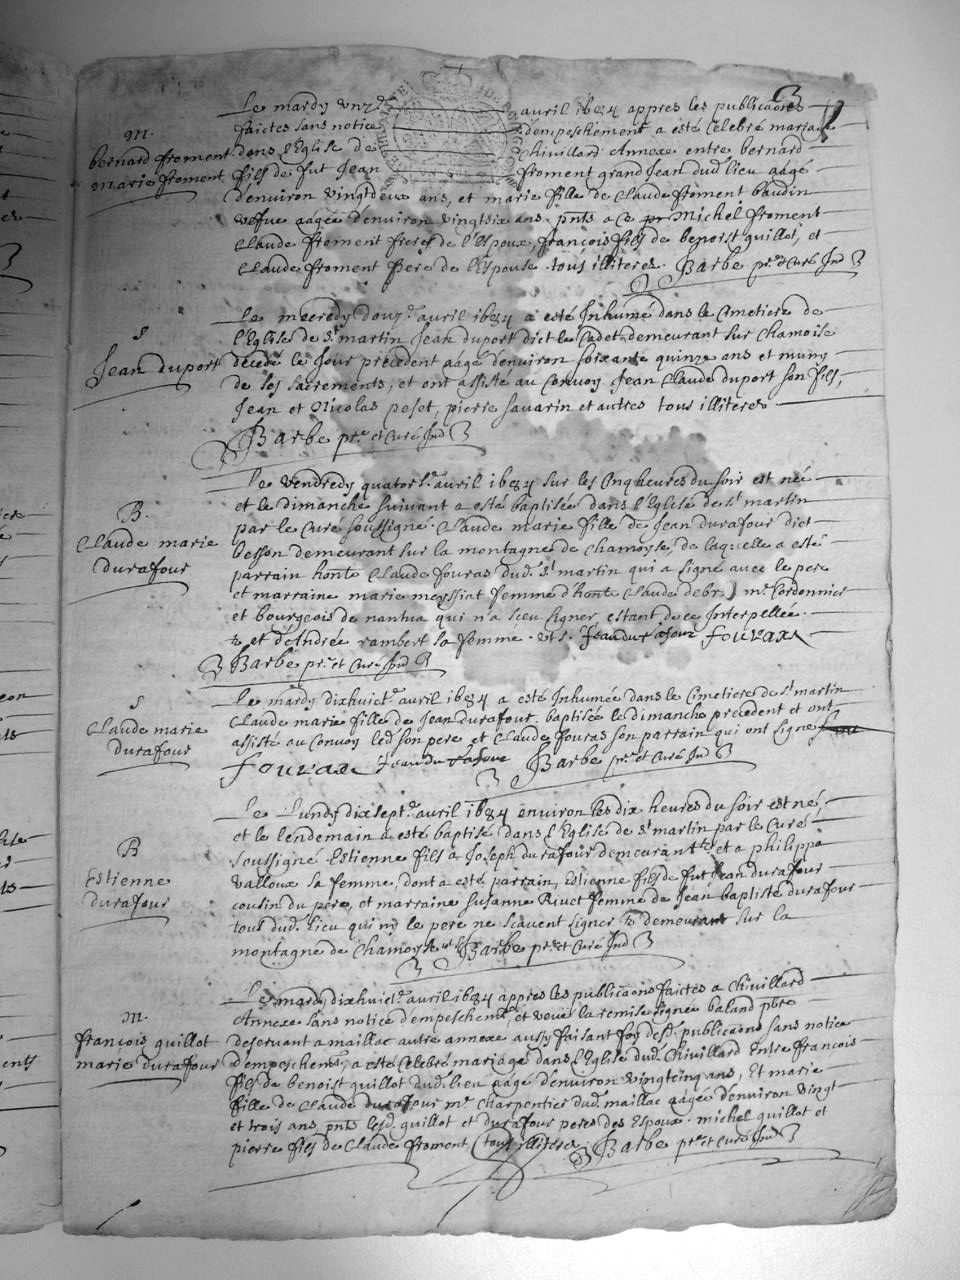 3
Le mardy unz.e avril 1684 appres les publicaōns
m.
faictes sans notice d'empeschement a esté Celebré mariage
bernard froment
dans l'Eglise de Chivillard Annexe entre bernard
marie froment
fils de fut Jean froment grand Jean dud. lieu aagé
d'environ vingtdeux ans, et marie fille de Claude froment baudin
vefve aagée d'environ vingtsix ans, pnts a ce pr Michel froment
Claude froment freres de l'Espoux, françois fils de benoist quillot, et
Claude froment pere de l'Espouse. tous illiteres. Barbe ptre et Curé Ind
Le mecredy douz.e avril 1684 a esté Inhumé dans le Cimetiere de
S
l'Eglise de St martin Jean duport dict le Cadet demeurant sur Chamoise
Jean duport
decedé le Jour precedent aagé d'environ soixante quinze ans et muny
de ses sacrements, et ont assisté au Convoy Jean Claude duport son fils,
Jean et Nicolas peset, pierre savarin et autres tous illiteres
Barbe ptre et Curé Ind
Le Vendredy quators.e avril 1684 sur les Cinq heures du soir est née
et le dimanche suivant a esté baptisée dans l'Eglise de St martin
B.
par le Curé soussigné. Claude marie fille de Jean durafour dict
Claude marie
besson demeurant sur la montagne de Chamoyse, de laquelle a esté
durafour
parrain honte Claude fouras dud. St martin qui a signé avec le pere
et marraine marie meyssiat femme d'honte Claude debr me Cordonnier
et bourgeois de nantua qui n'a sceu signer estant de ce Interpellée.
et d'Andrée rambert sa femme. Jean durafour fourax
Barbe ptre et Curé Ind
Le mardy dixhuict.e avril 1684 a esté Inhumée dans le Cimetiere de St martin
S
Claude marie fille de Jean durafour, baptisée le dimanche precedent et ont
Claude marie
assisté au Convoy led. son pere et Claude fouras son parrain qui ont signé
durafour
fourax Jean durafour Barbe ptre et Curé Ind
Le Lundy dix sept.e avril 1684 environ les dix heures du soir est né,
et le lendemain a esté baptisé dans l'Eglise de St martin par le Curé
B
soussigné Estienne fils a Joseph durafour demeurant et a philippa
Estienne
valloux sa femme, dont a esté parrain, Estienne fils de fut Jean durafour
durafour
cousin du pere, et marraine susanne Rivet femme de Jean baptiste durafour
tous dud. lieu qui ny le pere ne scavent signer demeurant sur la
montagne de Chamoyse Barbe ptre et Curé Ind
Le mardy dixhuict.e avril 1684 appres les publicaōns faictes a Chivillard
Annexe sans notice d'empeschemt, et veue la remise signée baland pbre
m.
deservant a maillac autre annexe aussy faisant foy desd. publicaōns sans notice
françois quillot
d'empeschemt, a esté Celebré mariage dans l'Eglise dud. Chivillard entre françois
marie durafour
fils de benoist quillot dud. lieu aagé d'environ vingtcinq ans, Et marie
fille de Claude durafour me Charpentier dud. maillac aagée d'environ vingt
et trois ans, pnts lesd. quillot et durafour peres des Espoux. michel quillot et
pierre fils de Claude froment tous illiteres Barbe ptre et Curé Ind